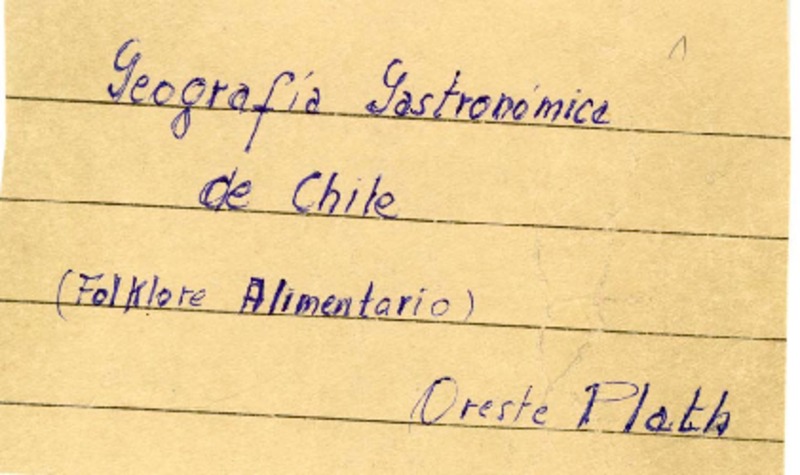 Geografía Gastronómica
de Chile
(Folklore Alimentario)
Oreste Plath